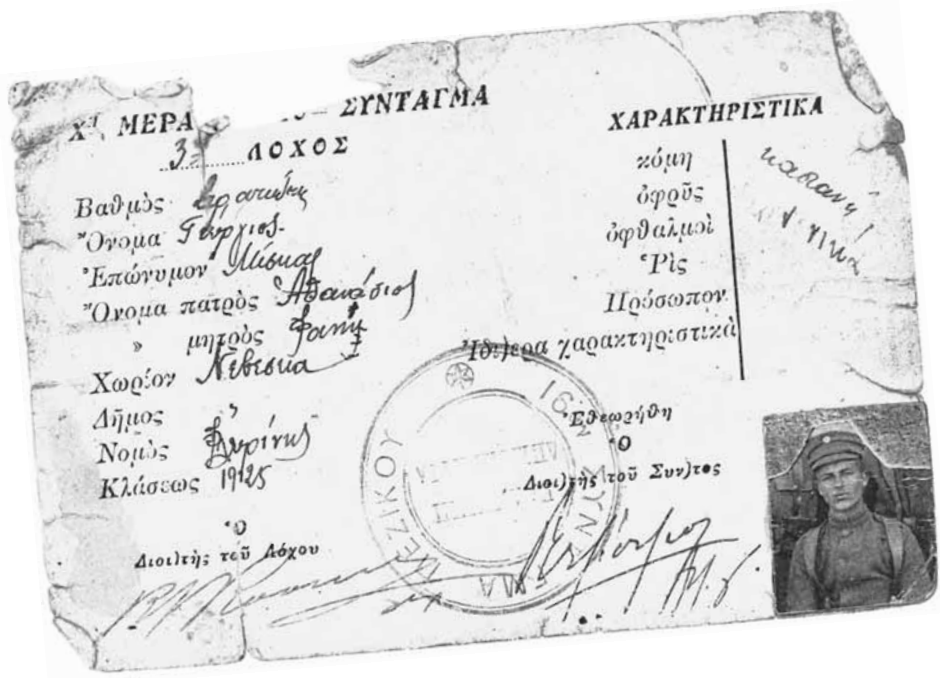 ΜΕΡΑ ΣΥΝΤΑΓΜΑ
3η ΛΟΧΟΣ
Βαθμὸς
Ὄνομα Γεώργιος
Ἐπώνυμον Μίσκας
Ὄνομα πατρὸς Ἀθανάσιος
» μητρὸς Φανή
Χωρίον Νέβεσκα
Δῆμος
Νομὸς Φλωρίνης
Κλάσεως 1925
Ὁ
Διοι)τὴς τοῦ Λόχου
ΧΑΡΑΚΤΗΡΙΣΤΙΚΑ
κόμη καστανή
ὀφρῦς
ὀφθαλμοὶ
Ῥὶς
Πρόσωπον
Ἰδι)ερα χαρακτηριστικὰ
Ἐθεωρήθη
Ὁ
Διοι)τὴς τοῦ Συν)τος
16ον ΣΥΝΤΑΓΜΑ ΠΕΖΙΚΟΥ